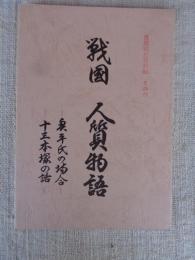 戦國 人質物語
―奥平氏の場合―
―十三本塚の話―